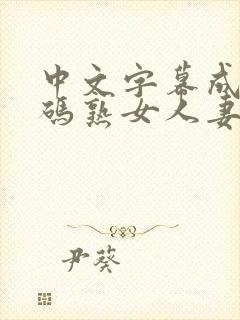 中文字幕成
碼熟女人妻
尹葵